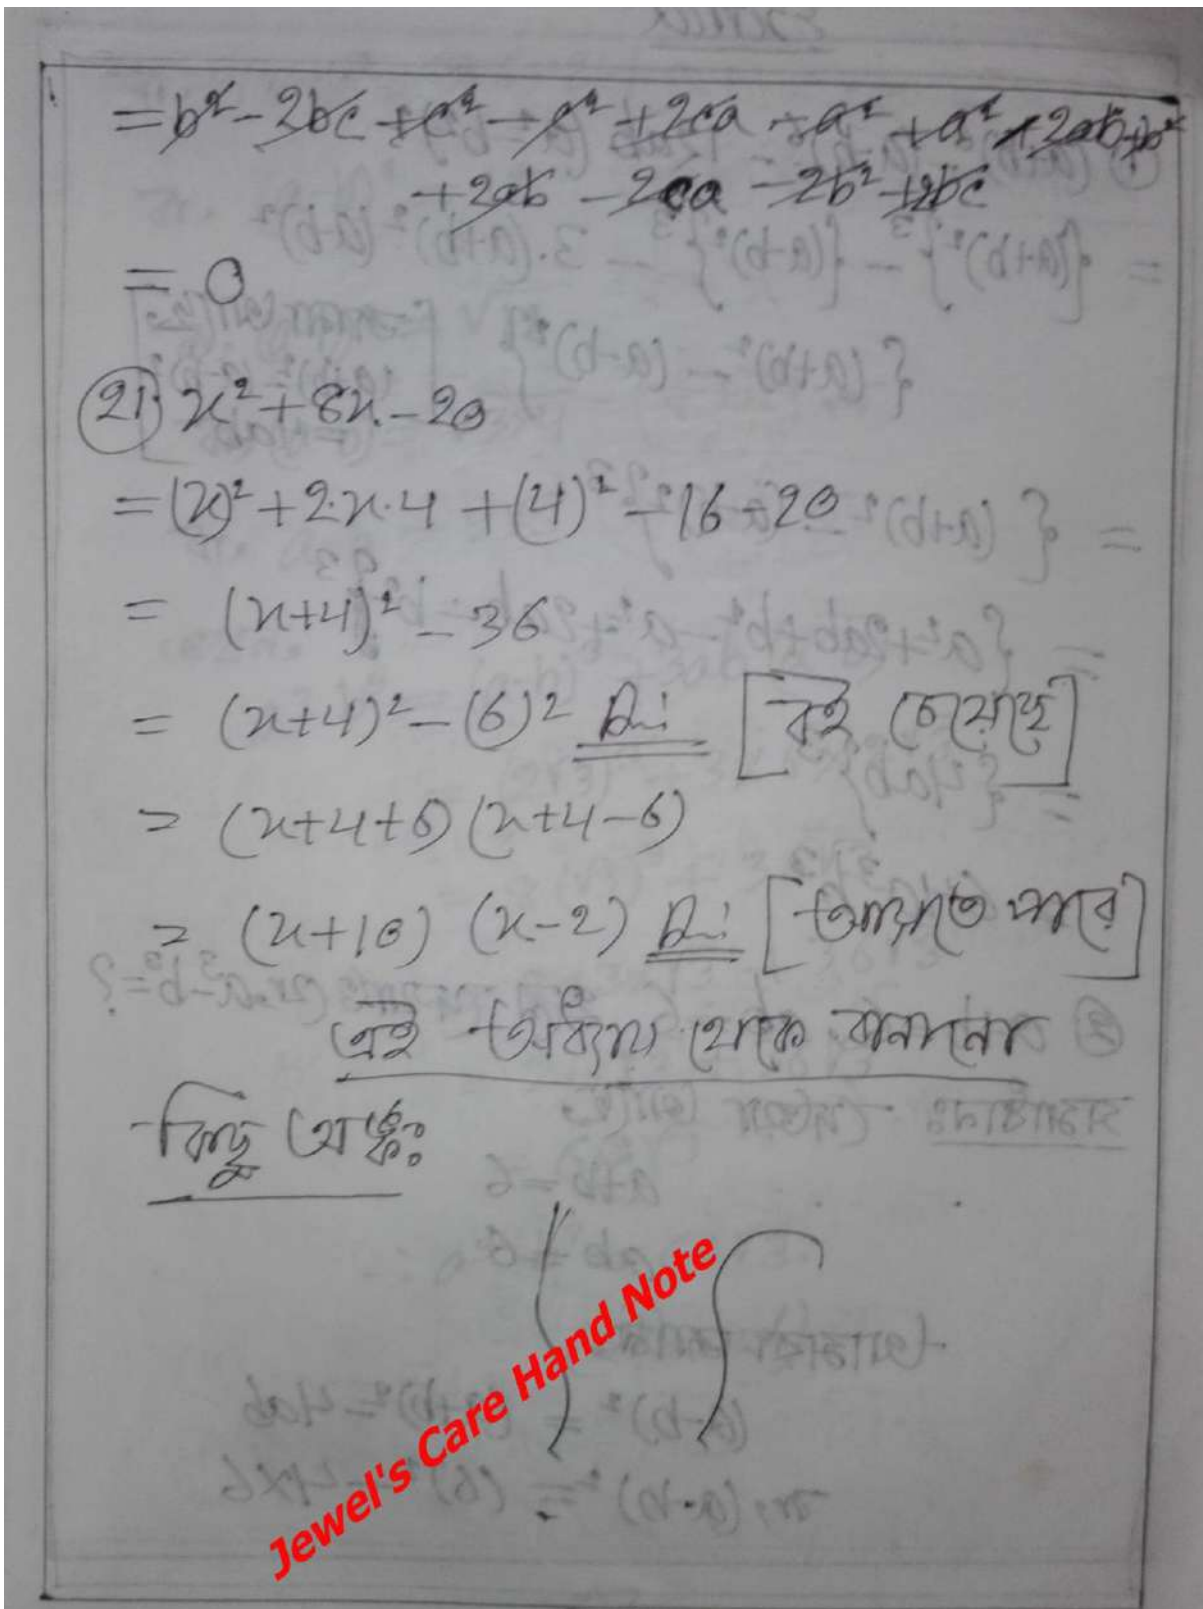 = b² - 2bc + c² - c² + 2ca - a² + a² + 2ab + b²
+ 2ab - 2ca - 2b² + 2bc
= 0
21. x² + 8x - 20
= (x)² + 2.x.4 + (4)² - 16 - 20
= (x+4)² - 36
= (x+4)² - (6)² Ans: [বই চেয়েছে]
= (x+4+6) (x+4-6)
= (x+10) (x-2) Ans: [আসতে পারে]
এই অধ্যায় থেকে বানানো
কিছু অঙ্কঃ
Jewel's Care Hand Note